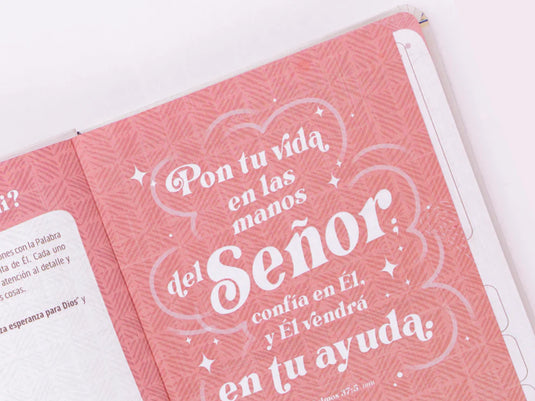 i?
ones con la Palabra
ta de Él. Cada uno
atención al detalle y
s cosas.
za esperanza para Dios" y
Pon tu vida
en las
manos
del Señor;
confía en Él,
y Él vendrá
en tu ayuda.
lmos 37:5